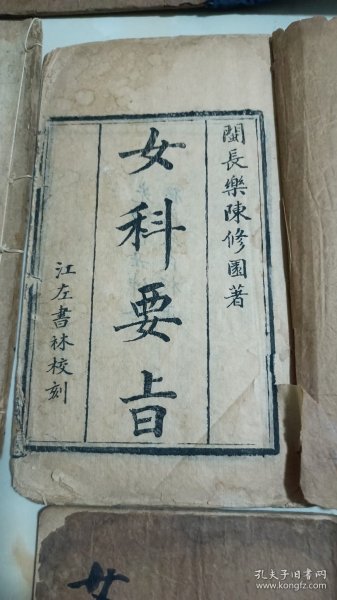 閩長樂陳修園著
女科要旨
江左書林校刻
女
孔夫子旧书网
www.kongfz.com